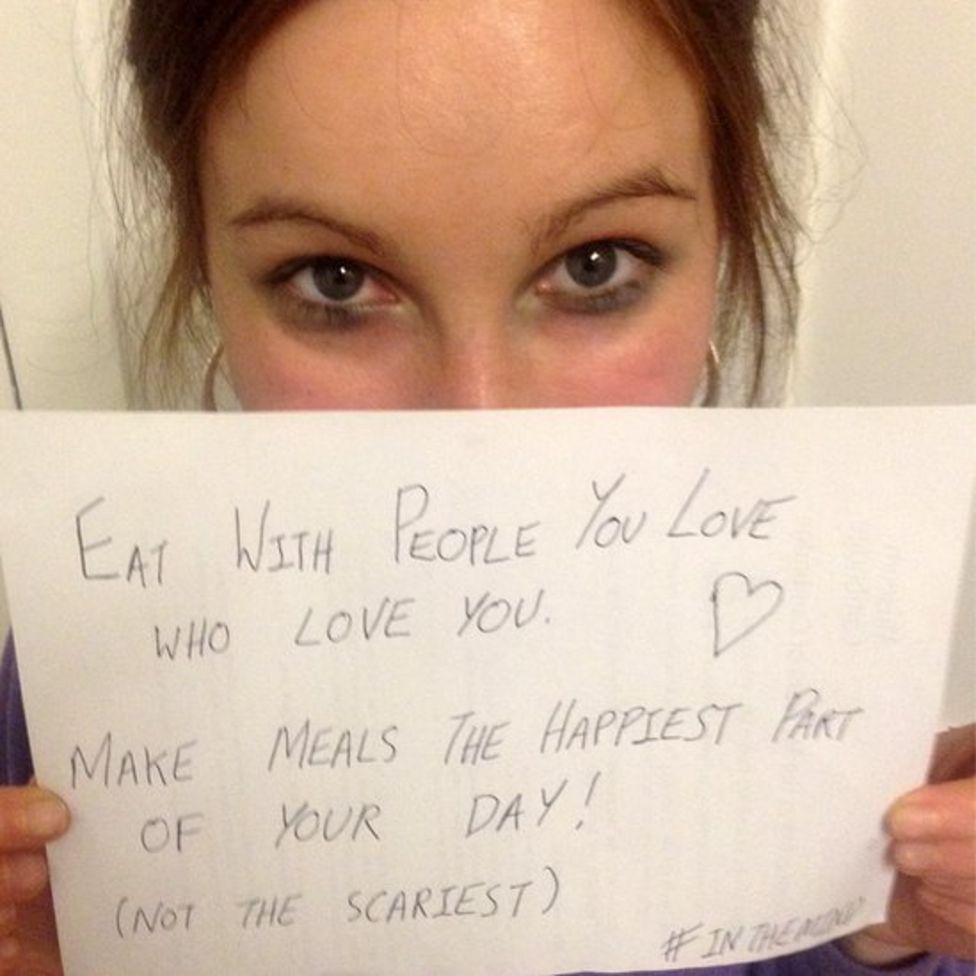 EAT WITH PEOPLE YOU LOVE
WHO LOVE YOU.
MAKE MEALS THE HAPPIEST PART
OF YOUR DAY!
(NOT THE SCARIEST)
#INTHEMIND